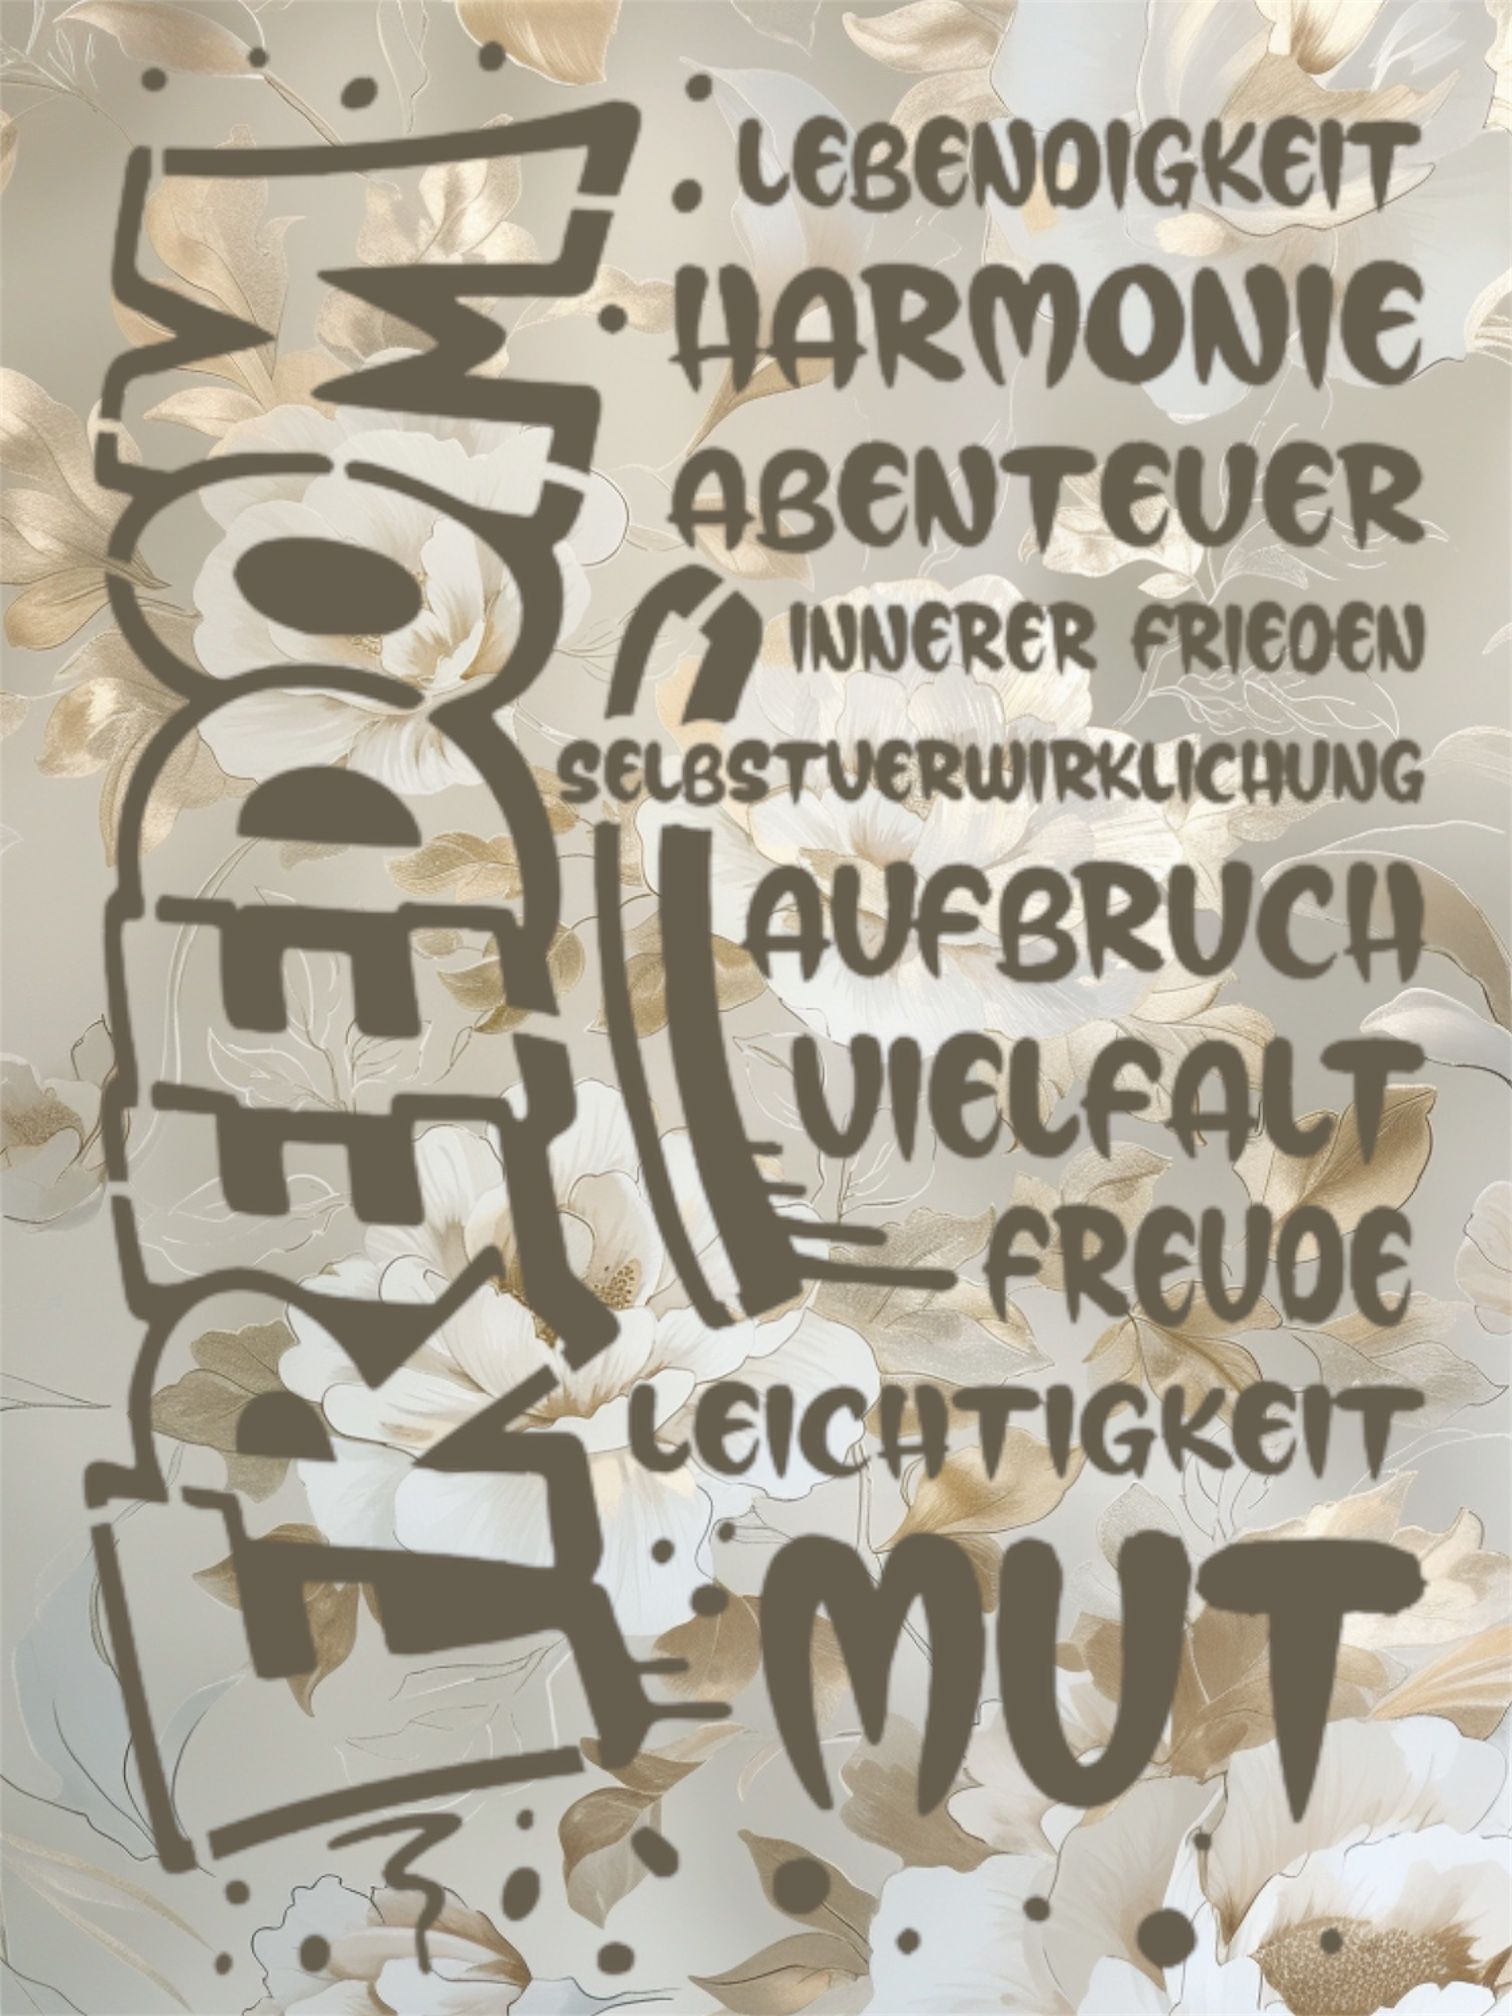 FREEDOM
LEBENDIGKEIT
HARMONIE
ABENTEUER
INNERER FRIEDEN
SELBSTVERWIRKLICHUNG
AUFBRUCH
VIELFALT
FREUDE
LEICHTIGKEIT
MUT